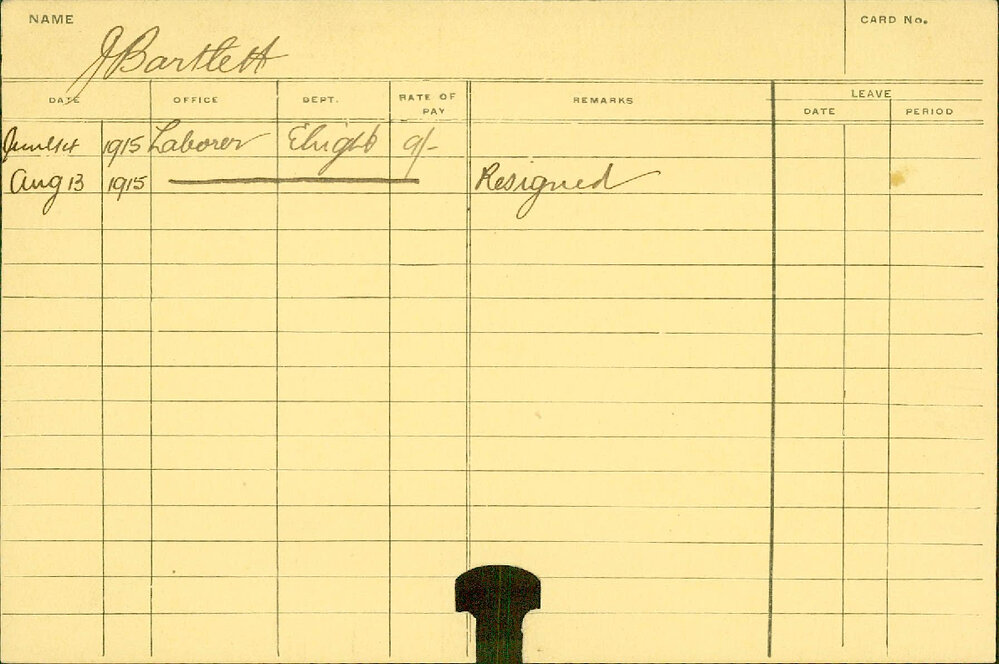 NAME
CARD No.
J Bartlett
DATE OFFICE DEPT. RATE OF PAY REMARKS LEAVE
DATE PERIOD
June 14 1915 Laborer 9/-
Aug 13 1915 Resigned